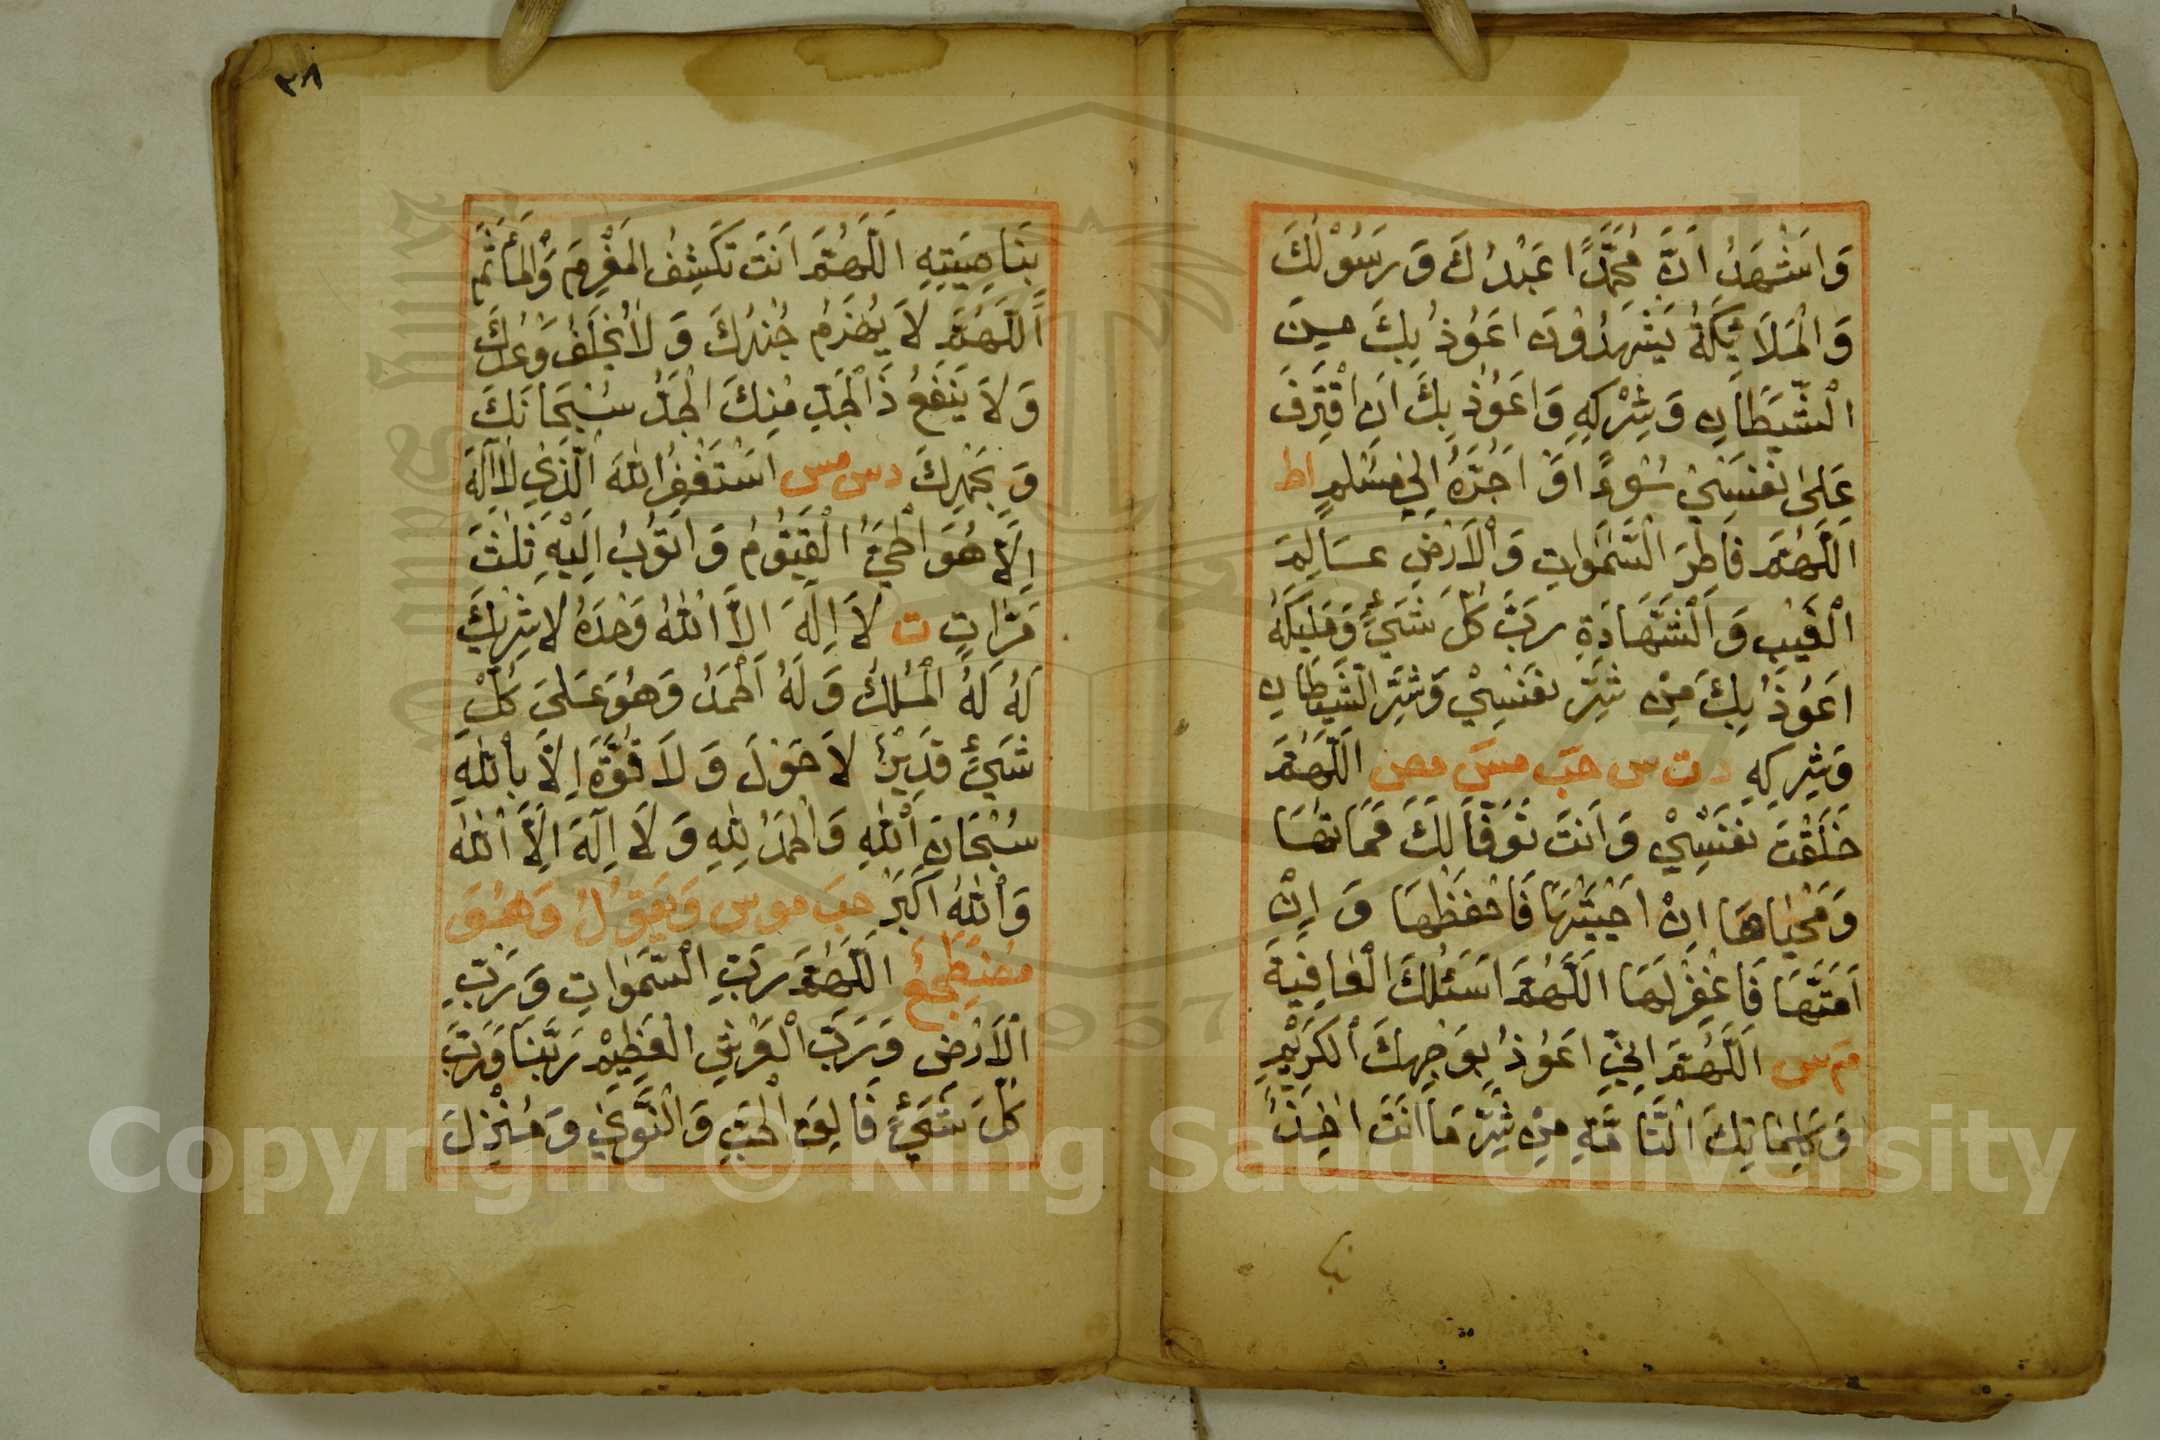 وَاَشْهَدُ اَنَّ مُحَمَّدًا عَبْدُكَ وَرَسُوْلُكَ
وَالْمَلَائِكَةُ يَشْهَدُوْنَ اَعُوْذُ بِكَ مِنَ
الْشَّيْطَانِ وَشِرْكِهِ وَاَعُوْذُ بِكَ اَنْ اَقْتَرِفَ
عَلٰى نَفْسِيْ سُوْءً اَوْ اَجُرَّهُ اِلٰى مُسْلِمٍ اط
اَللّٰهُمَّ فَاطِرَ الْسَّمٰوَاتِ وَالْاَرْضِ عَالِمَ
الْغَيْبِ وَالْشَّهَادَةِ رَبَّ كُلِّ شَيْءٍ وَمَلِيْكَهُ
اَعُوْذُ بِكَ مِنْ شَرِّ نَفْسِيْ وَشَرِّ الْشَّيْطَانِ
وَشِرْكِهِ د ت س حب مس مص اَللّٰهُمَّ
خَلَقْتَ نَفْسِيْ وَاَنْتَ تَوَفَّا لَكَ مَمَاتُهَا
وَمَحْيَاهَا اِنْ اَحْيَيْتَهَا فَاحْفَظْهَا وَاِنْ
اَمَتَّهَا فَاغْفِرْ لَهَا اَللّٰهُمَّ اَسْئَلُكَ الْعَافِيَةَ
م س اَللّٰهُمَّ اِنِّيْ اَعُوْذُ بِوَجْهِكَ الْكَرِيْمِ
وَكَلِمَاتِكَ الْتَّامَّةِ مِنْ شَرِّ مَا اَنْتَ اٰخِذٌ
بنا
٣٨
بِنَاصِيَتِهِ اَللّٰهُمَّ اَنْتَ تَكْشِفُ الْمَغْرَمَ وَالْمَأْثَمَ
اَللّٰهُمَّ لَا يُهْزَمُ جُنْدُكَ وَلَا يُخْلَفُ وَعْدُكَ
وَلَا يَنْفَعُ ذَا الْجَدِّ مِنْكَ الْجَدُّ سُبْحَانَكَ
وَبِحَمْدِكَ د س مص اَسْتَغْفِرُ اللّٰهَ الَّذِيْ لَا اِلٰهَ
اِلَّا هُوَ الْحَيُّ الْقَيُّوْمُ وَاَتُوْبُ اِلَيْهِ ثَلٰثَ
مَرَّاتٍ ت لَا اِلٰهَ اِلَّا اللّٰهُ وَحْدَهُ لَا شَرِيْكَ
لَهُ لَهُ الْمُلْكُ وَلَهُ الْحَمْدُ وَهُوَ عَلٰى كُلِّ
شَيْءٍ قَدِيْرٌ لَا حَوْلَ وَلَا قُوَّةَ اِلَّا بِاللّٰهِ
سُبْحَانَ اللّٰهِ وَالْحَمْدُ لِلّٰهِ وَلَا اِلٰهَ اِلَّا اللّٰهُ
وَاللّٰهُ اَكْبَرُ حب مو س وَيَقُوْلُ وَهُوَ
مُضْطَجِعٌ اَللّٰهُمَّ رَبَّ الْسَّمٰوَاتِ وَرَبَّ
الْاَرْضِ وَرَبَّ الْعَرْشِ الْعَظِيْمِ رَبَّنَا وَرَبَّ
كُلِّ شَيْءٍ فَالِقَ الْحَبِّ وَالْنَّوٰى وَمُنْزِلَ
Copyright © King Saud University
1957